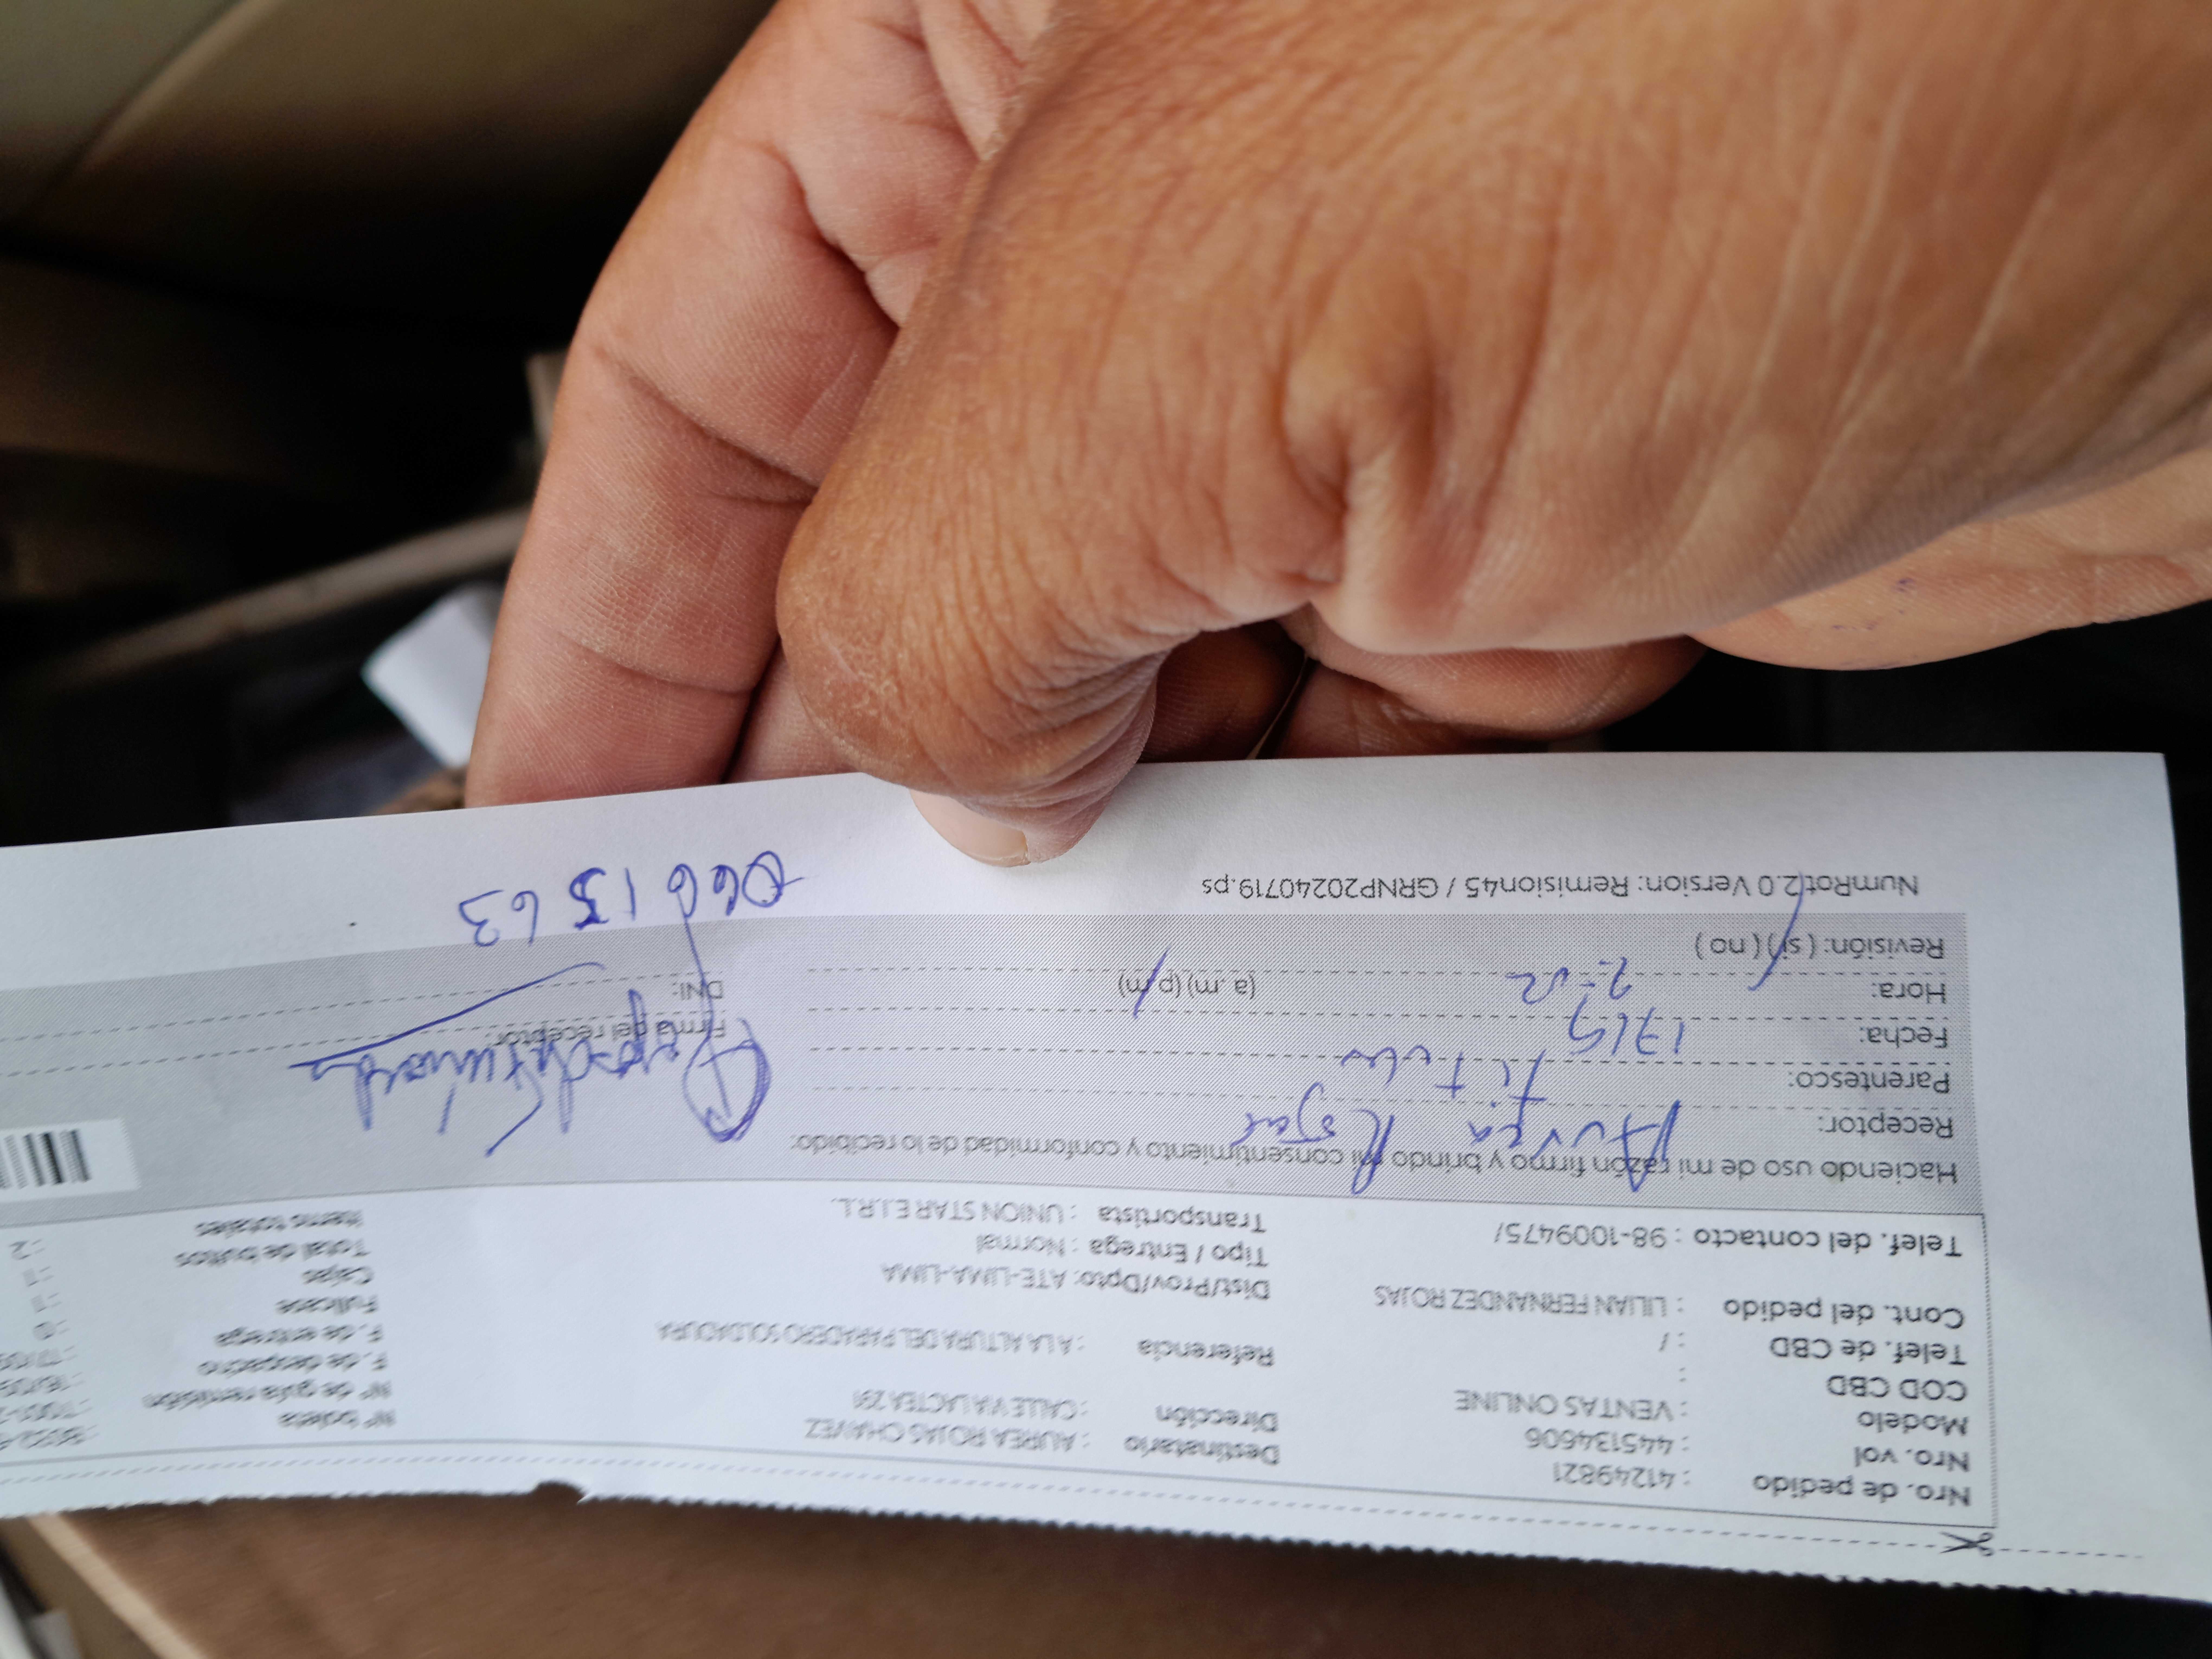 Nro. de pedido : 41249821
Nro. vol : 445134606
Modelo : VENTAS ONLINE
COD CBD :
Telef. de CBD : /
Cont. del pedido : LILIAN FERNANDEZ ROJAS
Telef. del contacto : 98-1009475/
Destinatario : AUREA ROJAS CHAVEZ
Dirección : CALLE VIA LACTEA 291
Referencia : A LA ALTURA DEL PARADERO SOLDADURA
Dist/Prov/Dpto: ATE-LIMA-LIMA
Tipo / Entrega : Normal
Transportista : UNION STAR E.I.R.L.
Nº boleta
Nº de guía remisión
F. de despacho
F. de entrega
Fullcase
Cajas
Total de bultos
Items totales : 2
Haciendo uso de mi razón firmo y brindo mi consentimiento y conformidad de lo recibido:
Receptor: Aurea Rojas
Parentesco: Titular
Fecha: 17/9
Hora: (a .m) (p.m)
Revisión: ( si ) ( no )
Firma del receptor:
DNI:
0661563
NumRot 2.0 Version: Remision45 / GRNP20240719.ps